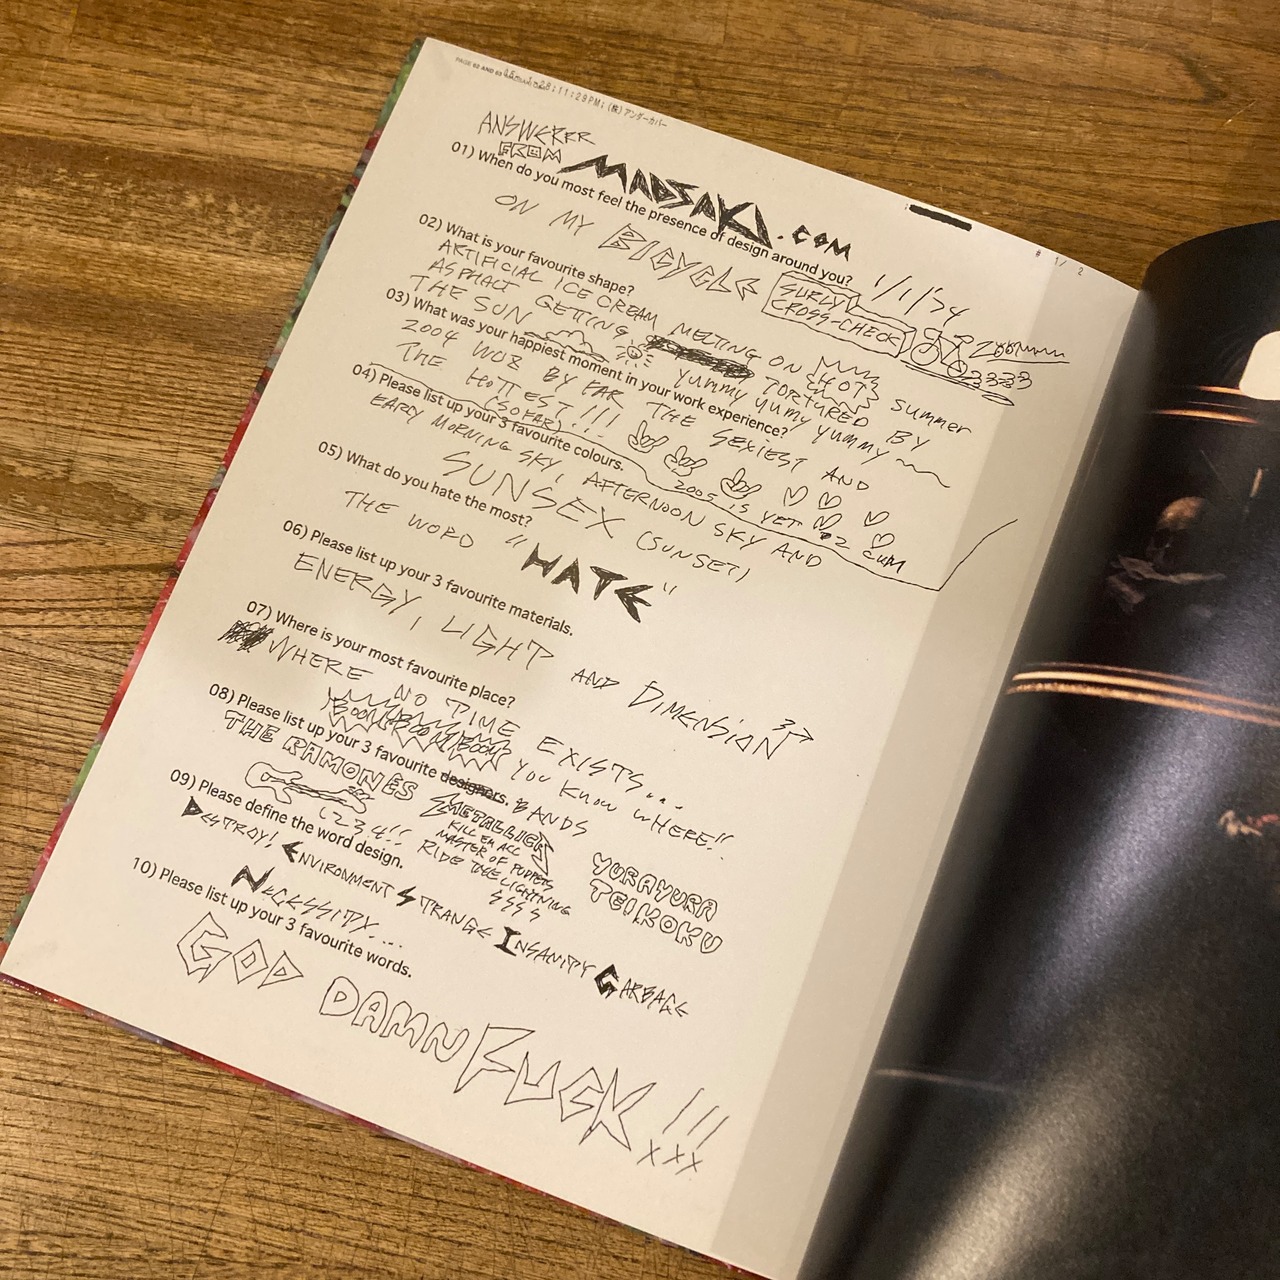 PAGE 62 AND 63
28;11:29PM;(株)アンダーカバー
# 1/ 2
ANSWERRR
FROM MADSAKI.COM
01) When do you most feel the presence of design around you?
ON MY BICYCLE
SURLY
CROSS-CHECK
02) What is your favourite shape?
ARTIFICIAL ICE CREAM MELTING ON HOT SUMMER
ASPHALT GETTING TORTURED BY
THE SUN YUMMY YUMY YUMMY
03) What was your happiest moment in your work experience?
2004 WUZ BY FAR THE SEXIEST AND
THE HOTTEST!!!
(SO FAR) 2005 IS YET 2 CUM
04) Please list up your 3 favourite colours.
EARLY MORNING SKY, AFTERNOON SKY AND
SUNSEX (SUNSET)
05) What do you hate the most?
THE WORD "HATE"
06) Please list up your 3 favourite materials.
ENERGY, LIGHT AND DIMENSION
07) Where is your most favourite place?
WHERE NO TIME EXISTS...
BOOM BOOM BOOM YOU KNOW WHERE!!
08) Please list up your 3 favourite designers. BANDS
THE RAMONES METALLICA YURAYURA
TEIKOKU
1234!! KILL EM ALL
MASTER OF PUPPETS
RIDE THE LIGHTNING
$$$$
09) Please define the word design.
DESTROY! ENVIRONMENT STRANGE INSANITY GARBAGE
NECESSITY...
10) Please list up your 3 favourite words.
GOD DAMN FUCK!!!
XXX